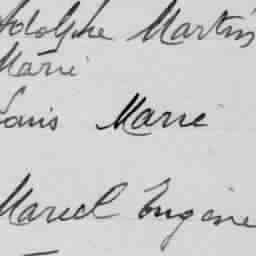 Adolphe Martin
Marie
Louis Marie
Marcel Eugène